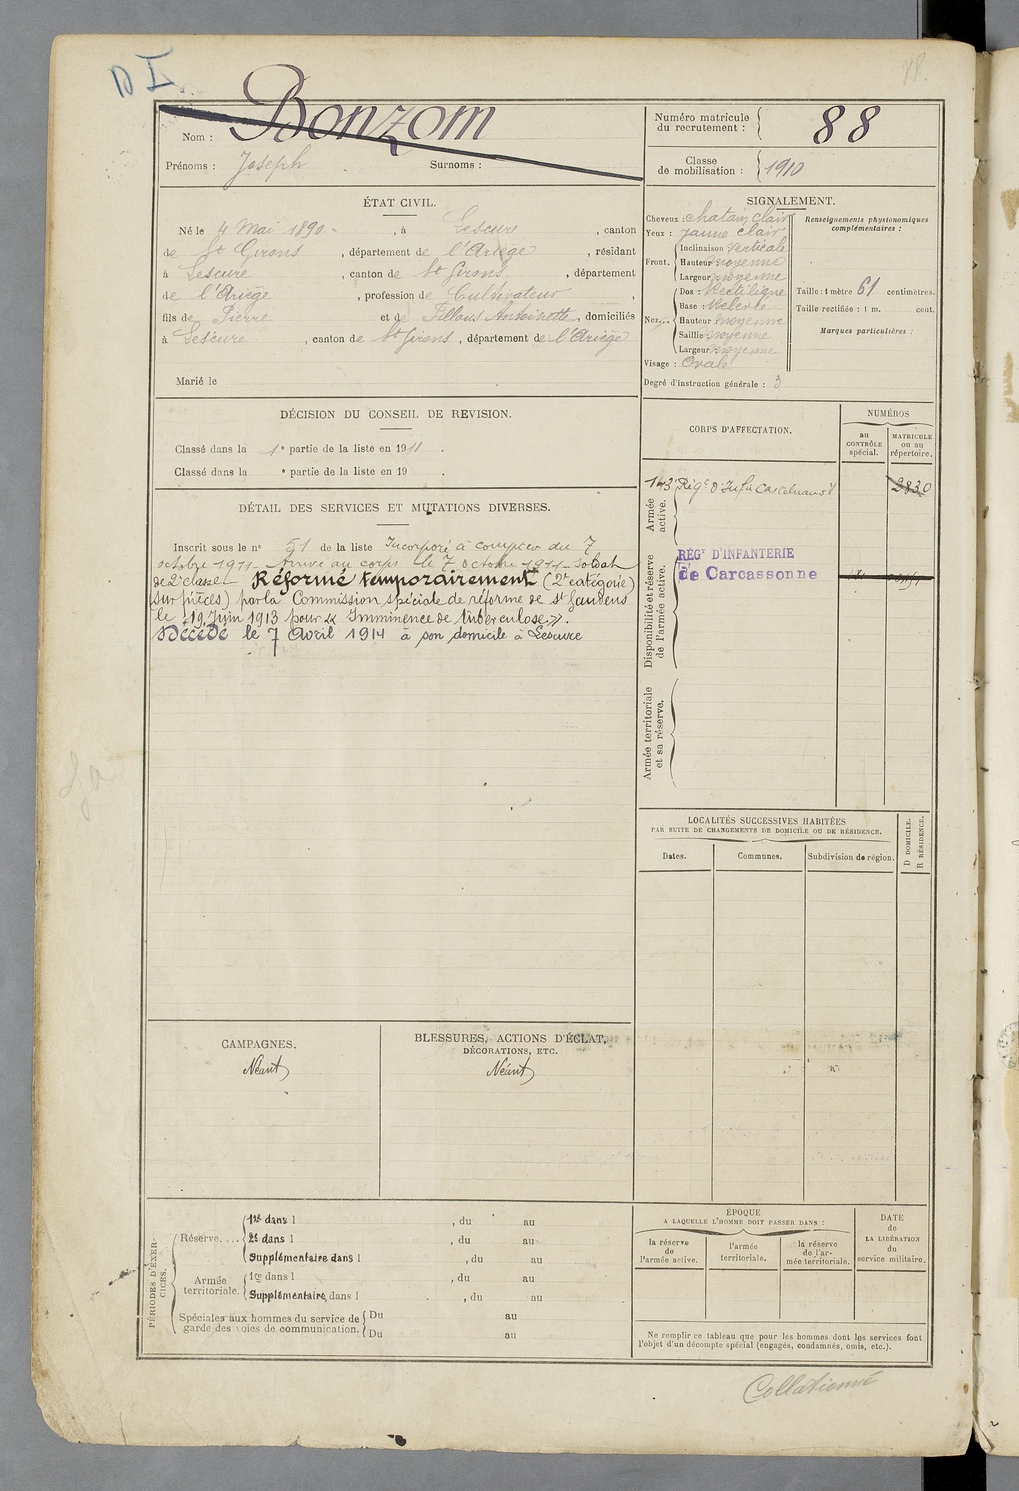 D I
Nom : Bonzom
Prénoms : Joseph Surnoms :
Numéro matricule
du recrutement : 88
Classe
de mobilisation : 1910
ÉTAT CIVIL.
Né le 4 Mai 1890 , à Lescure , canton
de St Girons , département de l'Ariège , résidant
à Lescure , canton de St Girons , département
de l'Ariège , profession de Cultivateur ,
fils de Pierre et de Antoinette , domiciliés
à Lescure , canton de St Girons , département de l'Ariège
Marié le
SIGNALEMENT.
Cheveux : chatain clair
Yeux : jaune clair
Front. Inclinaison verticale
Hauteur moyenne
Largeur moyenne
Nez... Dos : Rectiligne
Base : Relevée
Hauteur moyenne
Saillie moyenne
Largeur moyenne
Visage : Ovale
Degré d'instruction générale : 3
Renseignements physionomiques
complémentaires :
Taille : 1 mètre 61 centimètres.
Taille rectifiée : 1 m. cent.
Marques particulières :
DÉCISION DU CONSEIL DE REVISION.
Classé dans la 1e partie de la liste en 1911 .
Classé dans la e partie de la liste en 19 .
DÉTAIL DES SERVICES ET MUTATIONS DIVERSES.
Inscrit sous le no 51 de la liste Incorporé à compter du 7
octobre 1911 Arrivé au corps le 7 octobre 1911 – Soldat
de 2e classe Réformé temporairement (2e catégorie)
(sur pièces) par la Commission spéciale de réforme de St Gaudens
le 19 Juin 1913 pour « Imminence de tuberculose ».
Décédé le 7 Avril 1914 à son domicile à Lescure
CORPS D'AFFECTATION.
NUMÉROS
au
CONTRÔLE
spécial.
MATRICULE
ou au
répertoire.
Armée
active.
143e Rég. d'Infie Castelnaudy 2830
Disponibilité et réserve
de l'armée active.
RÉGt D'INFANTERIE
de Carcassonne
Armée territoriale
et sa réserve.
LOCALITÉS SUCCESSIVES HABITÉES
PAR SUITE DE CHANGEMENTS DE DOMICILE OU DE RÉSIDENCE.
Dates. Communes. Subdivision de région.
D DOMICILE.
R RÉSIDENCE.
CAMPAGNES.
Néant
BLESSURES, ACTIONS D'ÉCLAT,
DÉCORATIONS, ETC.
Néant
PÉRIODES D'EXER-
CICES.
Réserve.... 1re dans l , du au
2e dans l , du au
Supplémentaire dans l , du au
Armée
territoriale. 1re dans l , du au
Supplémentaire dans l , du au
Spéciales aux hommes du service de
garde des voies de communication. Du au
Du au
ÉPOQUE
A LAQUELLE L'HOMME DOIT PASSER DANS :
la réserve
de
l'armée active.
l'armée
territoriale.
la réserve
de l'ar-
mée territoriale.
DATE
de
LA LIBÉRATION
du
service militaire.
Ne remplir ce tableau que pour les hommes dont les services font
l'objet d'un décompte spécial (engagés, condamnés, omis, etc.).
Collationné